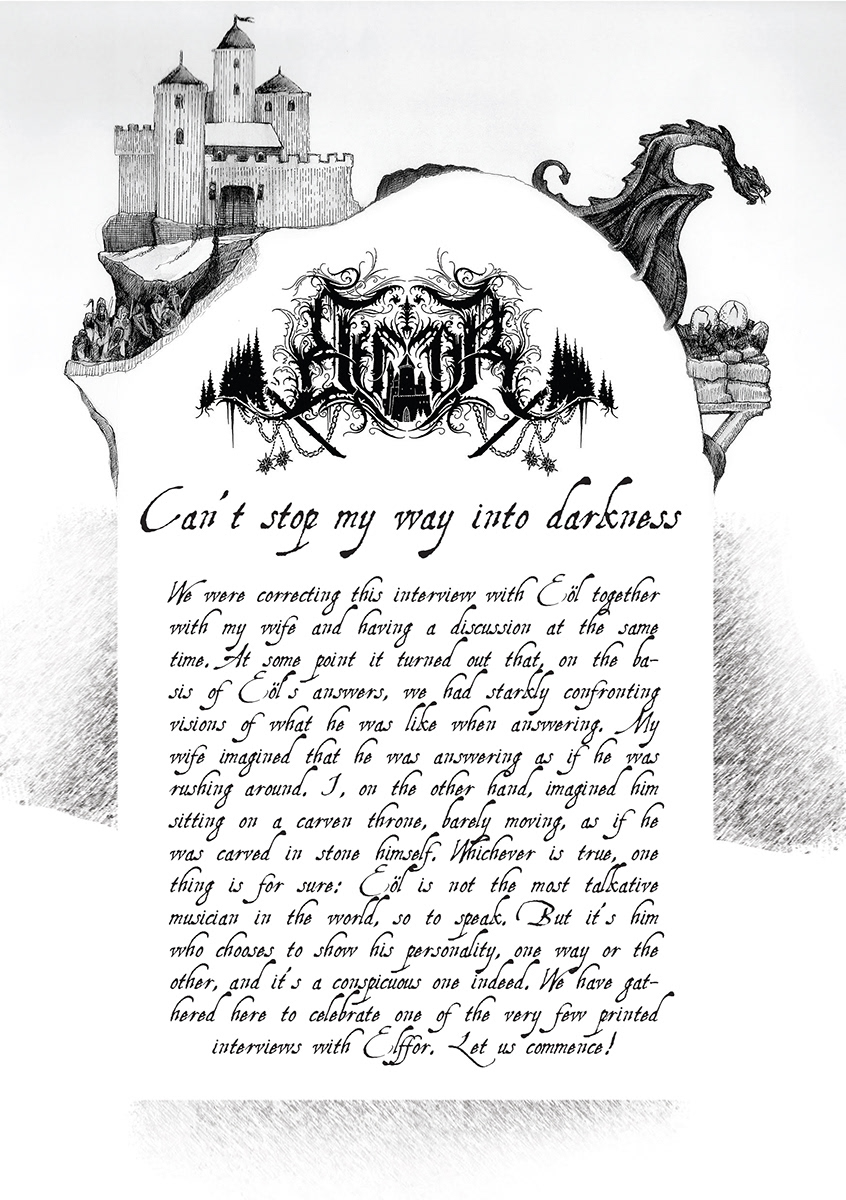 Can't stop my way into darkness
We were correcting this interview with Eöl together
with my wife and having a discussion at the same
time. At some point it turned out that, on the ba-
sis of Eöl's answers, we had starkly confronting
visions of what he was like when answering. My
wife imagined that he was answering as if he was
rushing around. I, on the other hand, imagined him
sitting on a carven throne, barely moving, as if he
was carved in stone himself. Whichever is true, one
thing is for sure: Eöl is not the most talkative
musician in the world, so to speak. But it's him
who chooses to show his personality, one way or the
other, and it's a conspicuous one indeed. We have gat-
hered here to celebrate one of the very few printed
interviews with Elffor. Let us commence!